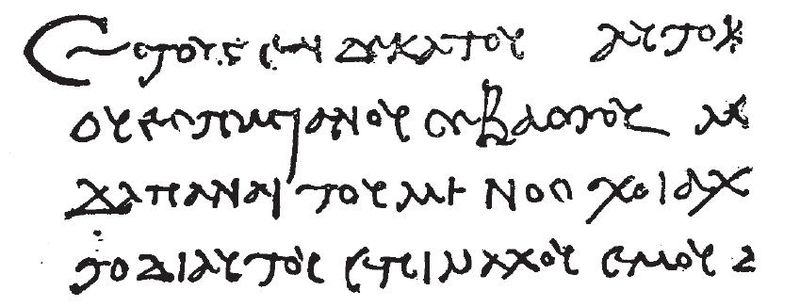 ετους ενδεκατου αυτοκ
ουεσπασιανου σεβαστου
δαπαναι του μηνος χοιαχ
το δι αυτου επιμαχου εμου δ